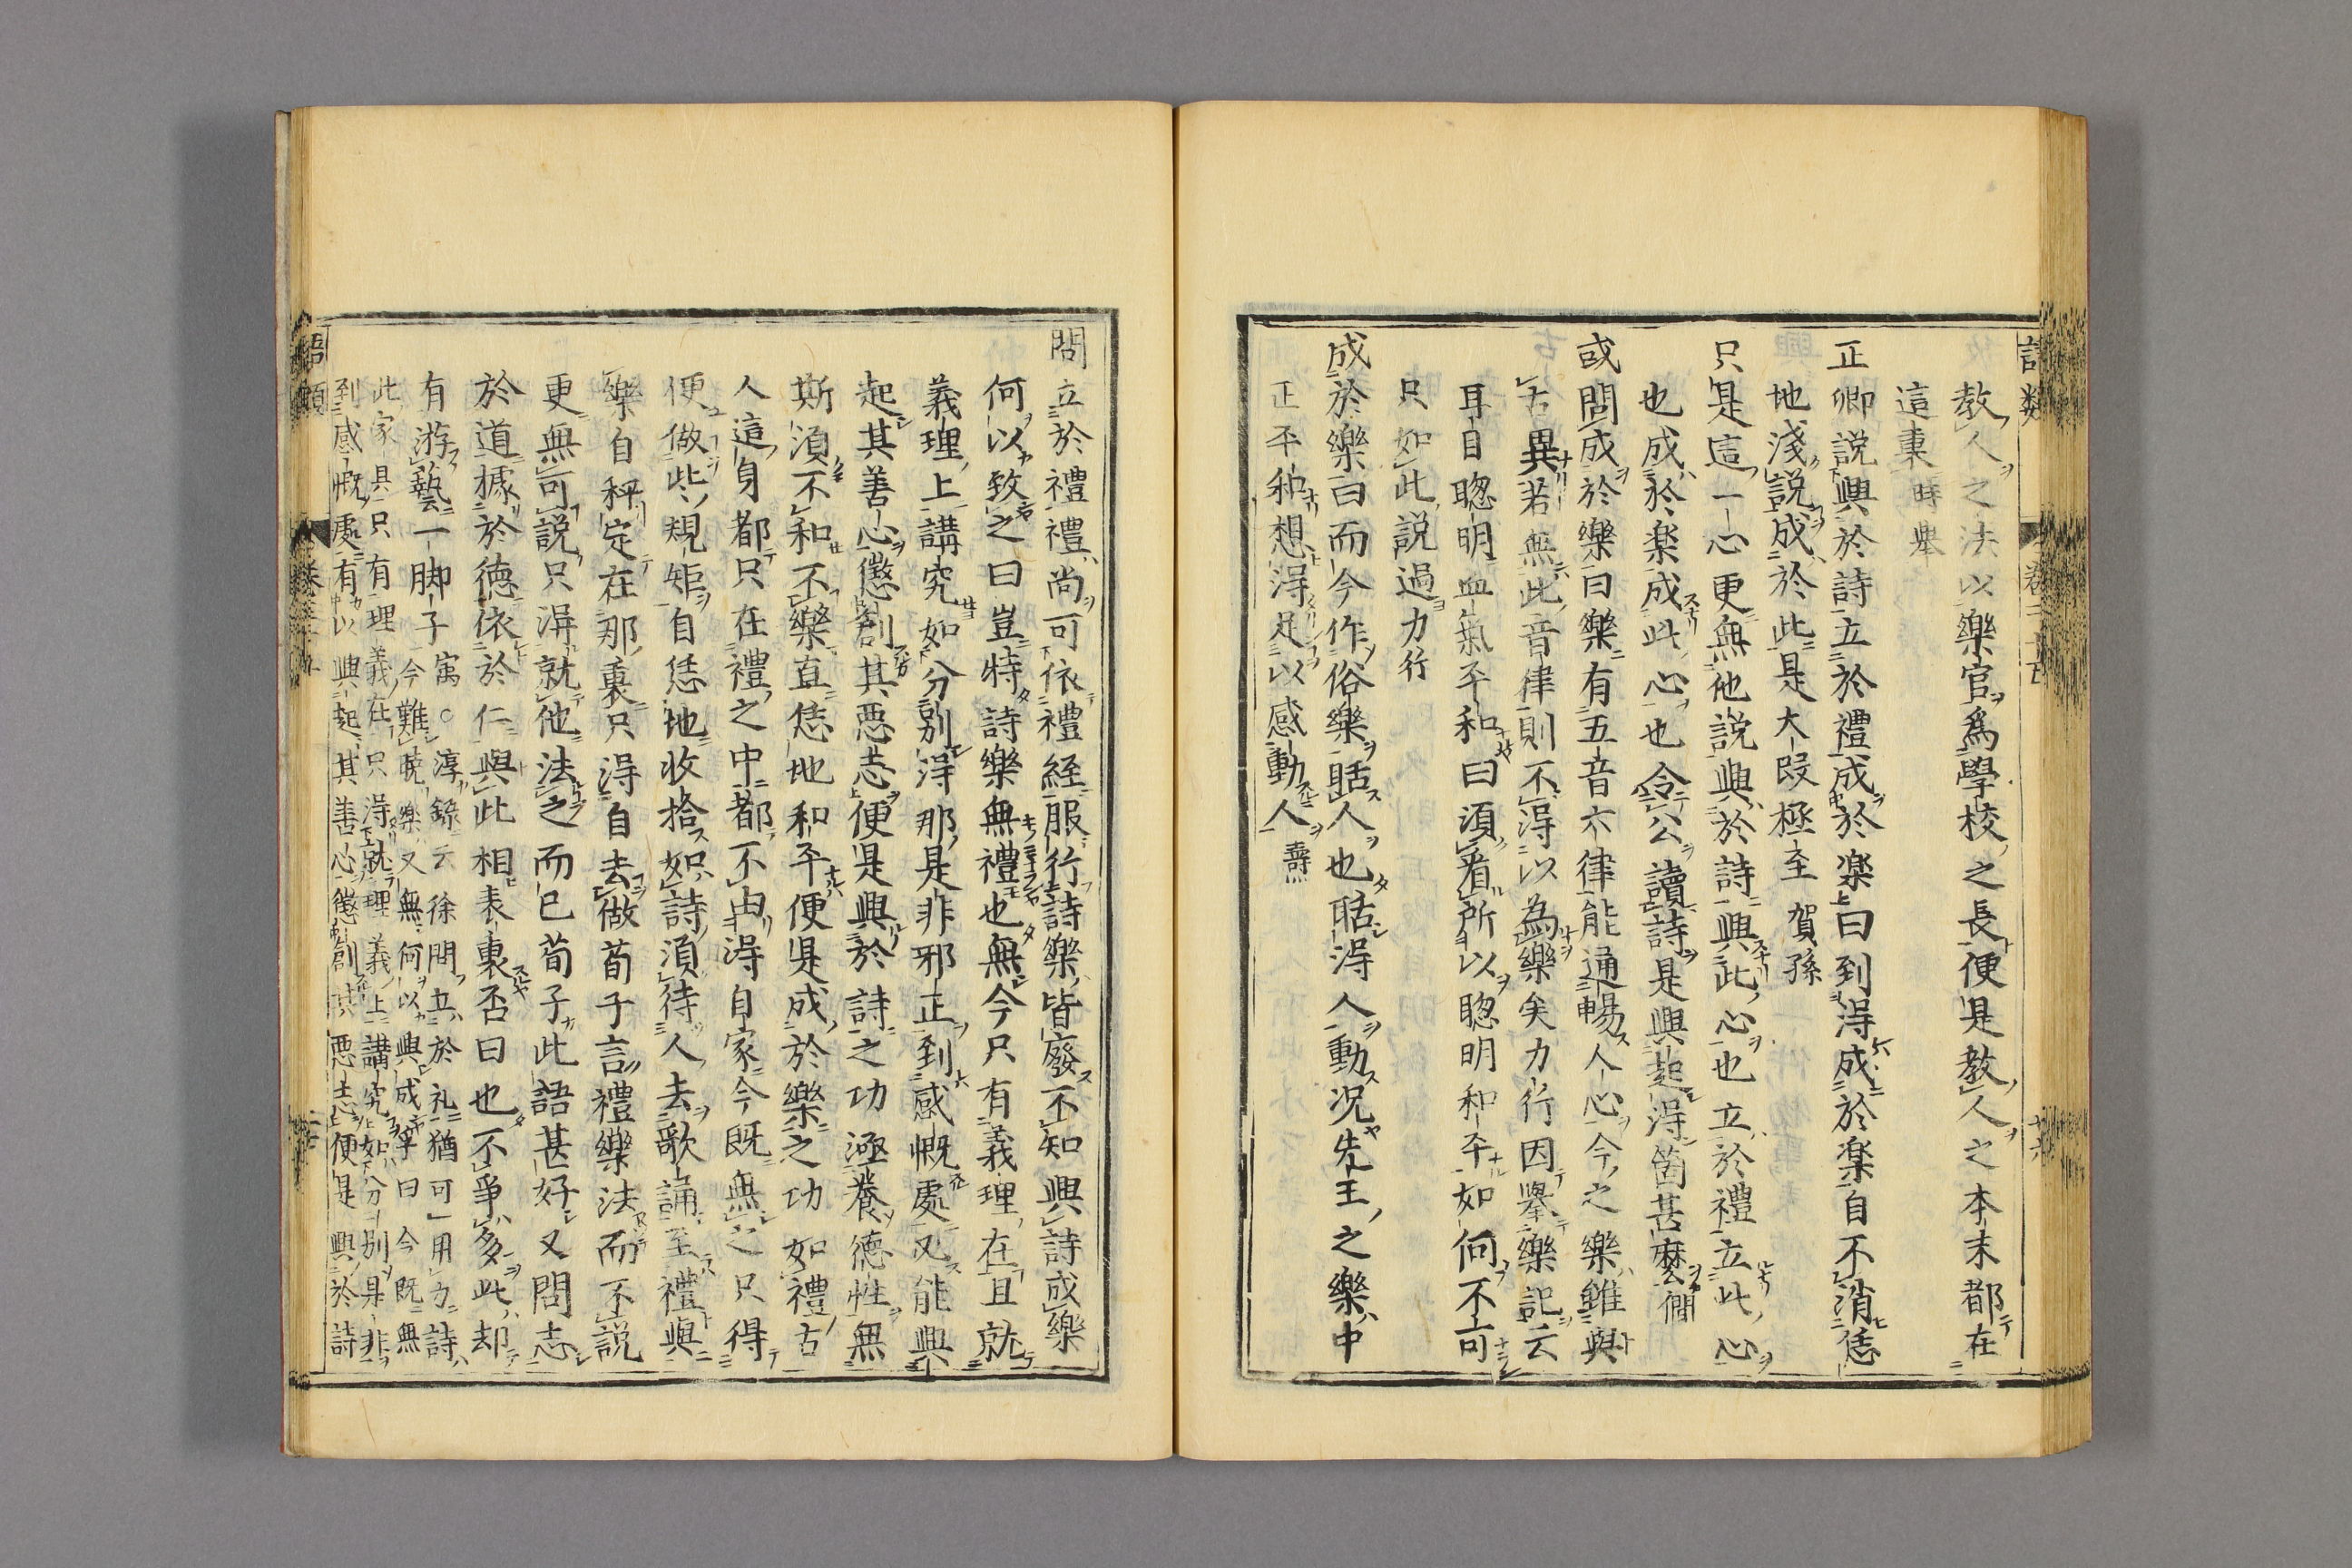 語類
卷三十五
教人之法以樂官爲學校之長便是教人之本末都在
這裏 時舉
正卿説興於詩立於禮成於楽曰到淂成於楽自不消恁
地淺説成於此是大叚極至 賀孫
只是這一心更無他説興於詩興此心也立於禮立此心
也成於楽成此心也今公讀詩是興起淂箇甚麽 僩
或問成於樂曰樂有五音六律能通暢人心今之樂雖與
古異若無此音律則不淂以為樂矣力行因舉樂記云
耳目聡明血氣平和曰須看所以聡明和平如何不可
只如此説過 力行
成於樂曰而今作俗樂聒人也聒淂人動況先王之樂中
正平和想淂足以感動人 燾
問立於禮禮尚可依禮經服行詩樂皆廢不知興詩成樂
何以致之曰豈特詩樂無禮也無今只有義理在且就
義理上講究如分別淂那是非邪正到感慨處又能興
起其善心懲創其惡志便是興於詩之功涵養德性無
斯須不和不樂直恁地和平便是成於樂之功如禮古
人這身都只在禮之中都不由淂自家今既無之只得
便做些規矩自恁地收拾如詩須待人去歌誦至禮與
樂自秤定在那裏只淂自去做荀子言禮樂法而不説
更無可説只淂就他法之而已荀子此語甚好又問志
於道據於德依於仁與此相表裏否曰也不爭多此却
有游藝一脚子 㝢○淳錄云徐問立於礼猶可用力詩
今難曉樂又無何以興成乎曰今既無
此家具只有理義在只淂就理義上講究如分別是非
到感慨處有以興起其善心懲創其悪志便是興於詩
語類